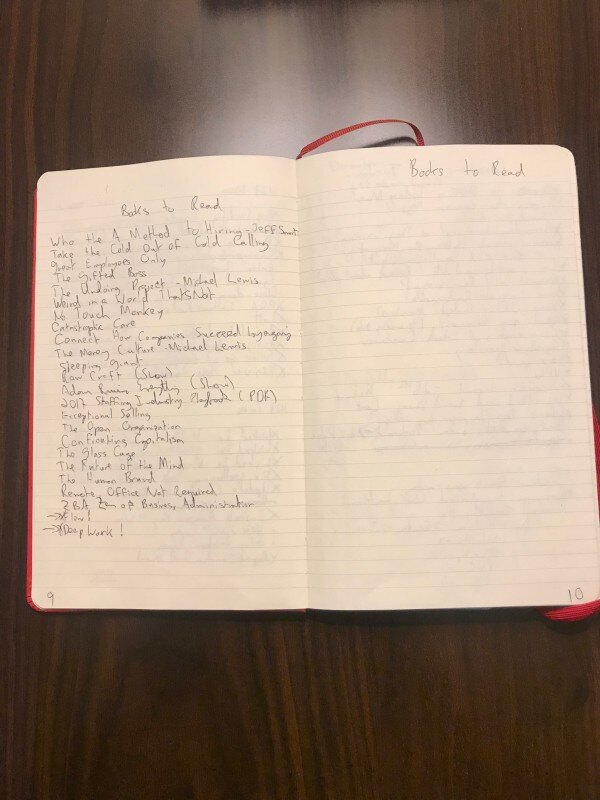 Books to Read
Who the A Method to Hiring - Jeff Smart
Take the Cold Out of Cold Calling
Great Employees Only
The Gifted Boss
The Undoing Project - Michael Lewis
Weird in a World That's Not
No Touch Monkey
Catastrophic Care
Connect How Companies Succeed by engaging
The Money Culture - Michael Lewis
Sleeping giant
Raw Craft (Show)
Adam Ruins Everything (Show)
2017 Staffing Industry Playbook (PDF)
Exceptional Selling
The Open Organization
Confronting Capitalism
The Glass Cage
The Future of the Mind
The Human Brand
Remote, Office Not Required
ZBA Zen of Business Administration
→ Flow!
→ Deep Work!
9
Books to Read
10